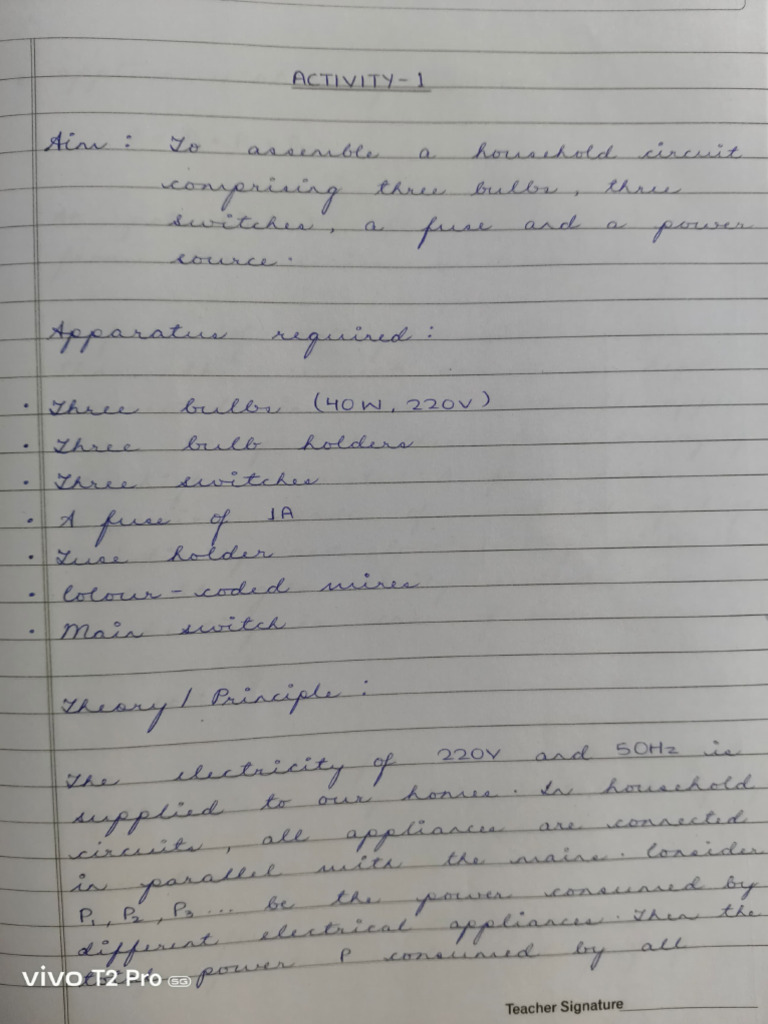 ACTIVITY-1
Aim : To assemble a household circuit
comprising three bulbs, three
switches, a fuse and a power
source.
Apparatus required :
• Three bulbs (40W, 220V)
• Three bulb holders
• Three switches
• A fuse of 1A
• Fuse holder
• Colour-coded wires
• Main switch
Theory / Principle :
The electricity of 220V and 50Hz is
supplied to our homes. In household
circuits, all appliances are connected
in parallel with the mains. Consider
P1, P2, P3 ... be the power consumed by
different electrical appliances. Then the
total power P consumed by all
vivo T2 Pro 5G
Teacher Signature